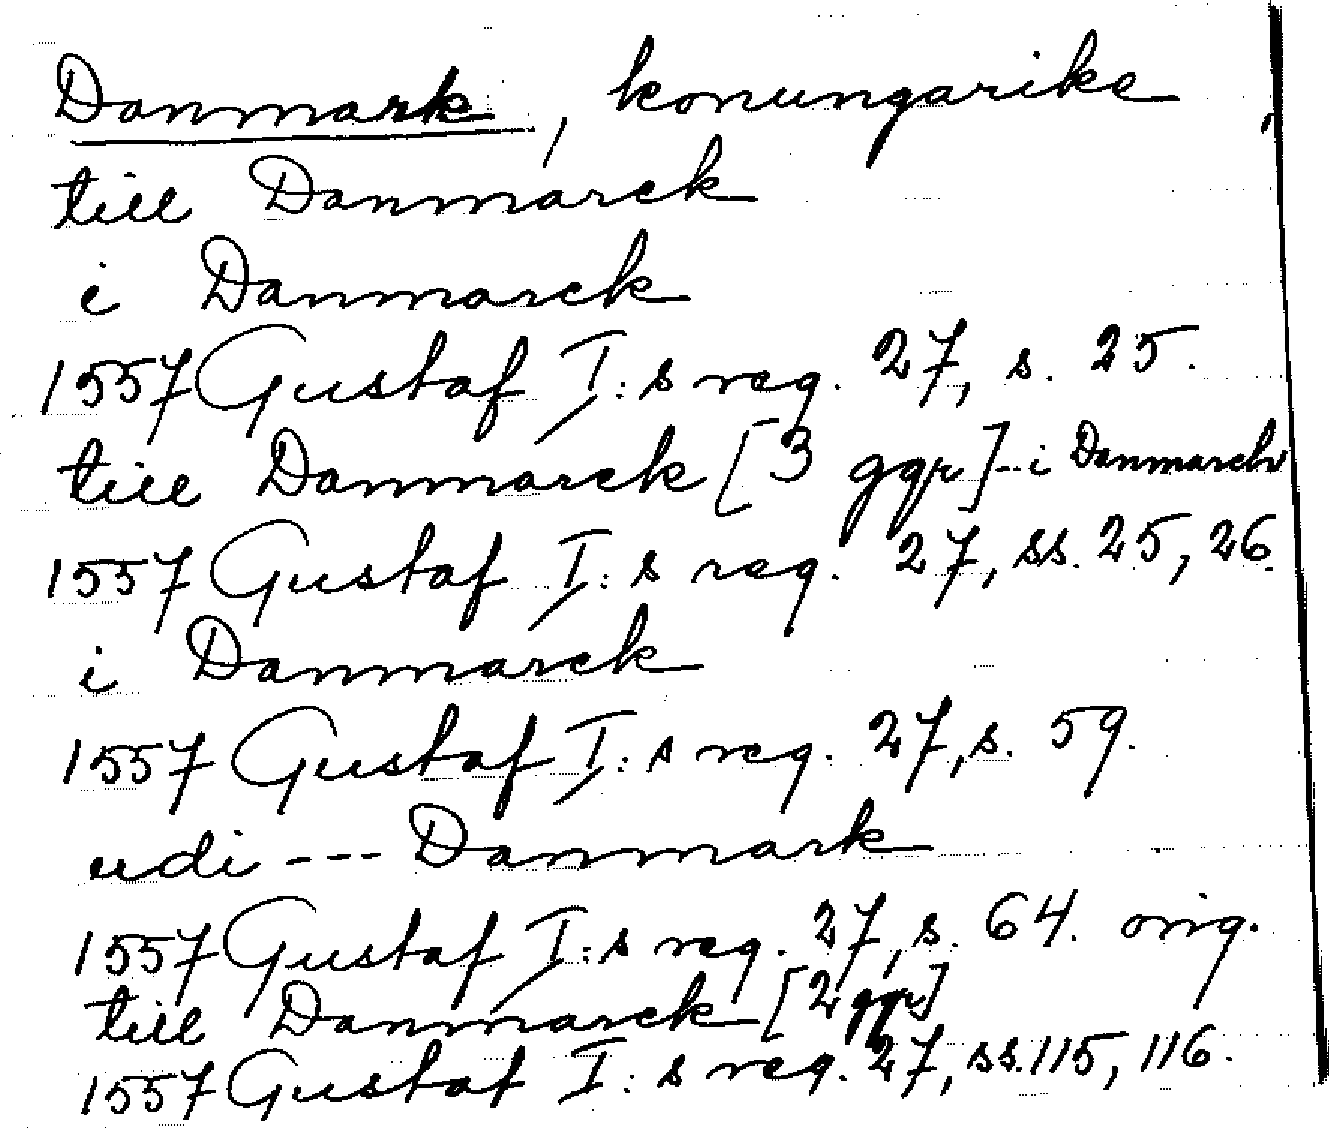 Danmark, konungarike
till Danmarck
i Danmarck
1557 Gustaf I:s reg. 27, s. 25.
till Danmarck [3 ggr] -- i Danmarck
1557 Gustaf I:s reg. 27, ss. 25, 26.
i Danmarck
1557 Gustaf I:s reg. 27, s. 59.
udi --- Danmark
1557 Gustaf I:s reg. 27, s. 64. orig.
till Danmarck [2 ggr]
1557 Gustaf I:s reg. 27, ss. 115, 116.